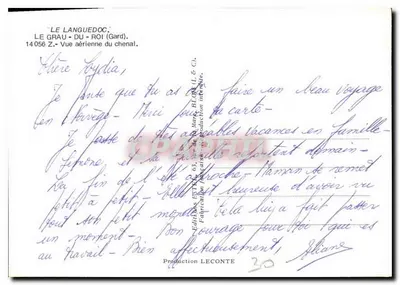 LE LANGUEDOC.
LE GRAU - DU - ROI (Gard).
14 056 Z.- Vue aérienne du chenal.
Chère Lydia,
Je pense que tu as faire un beau voyage
en Norvège - Merci pour ta carte -
Je passe de très agréables vacances en famille -
et la partent demain -
La fin de l'été approche. Maman se remet
petit à petit - Elle est heureuse d'avoir vu
tout son petit monde. Cela lui a fait passer
un moment - Bon courage pour toi qui es
au travail - Bien affectueusement,
Eliane
30
Production LECONTE